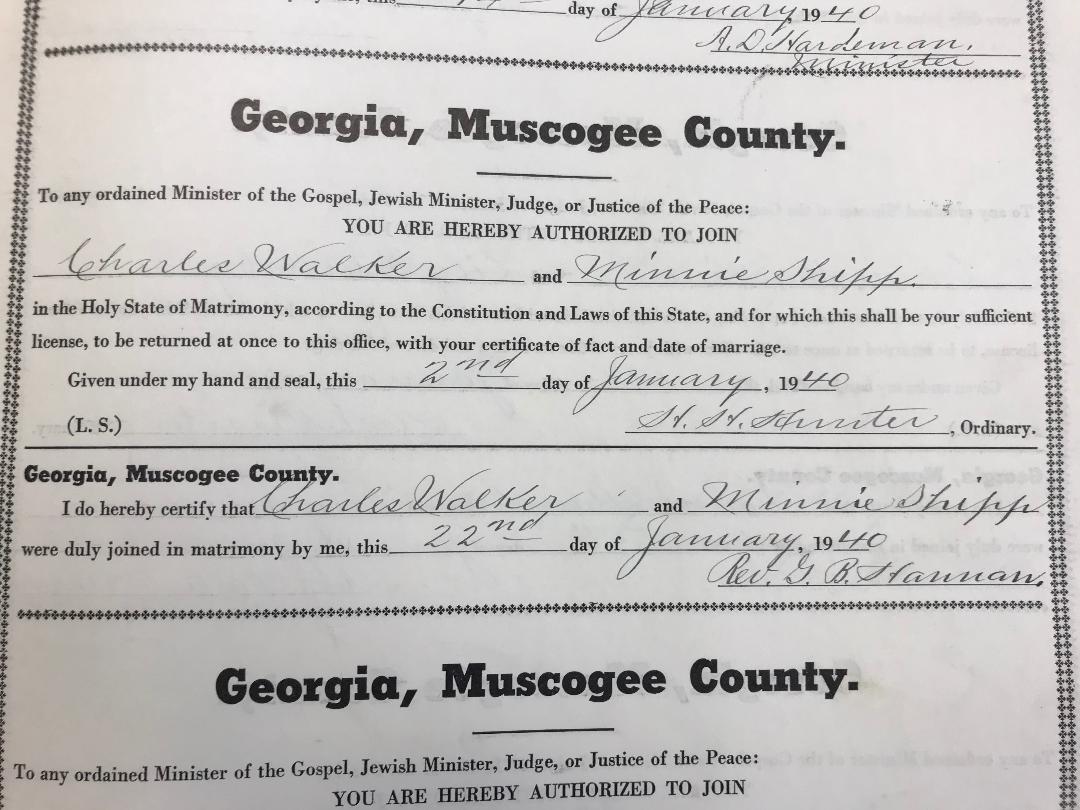 day of January, 1940
A. D. Hardeman.
Minister
Georgia, Muscogee County.
To any ordained Minister of the Gospel, Jewish Minister, Judge, or Justice of the Peace:
YOU ARE HEREBY AUTHORIZED TO JOIN
Charles Walker and Minnie Shipp.
in the Holy State of Matrimony, according to the Constitution and Laws of this State, and for which this shall be your sufficient
license, to be returned at once to this office, with your certificate of fact and date of marriage.
Given under my hand and seal, this 2nd day of January, 1940
(L. S.) H. H. Hunter, Ordinary.
Georgia, Muscogee County.
I do hereby certify that Charles Walker and Minnie Shipp
were duly joined in matrimony by me, this 22nd day of January, 1940
Rev. G. B. Hannan.
Georgia, Muscogee County.
To any ordained Minister of the Gospel, Jewish Minister, Judge, or Justice of the Peace:
YOU ARE HEREBY AUTHORIZED TO JOIN